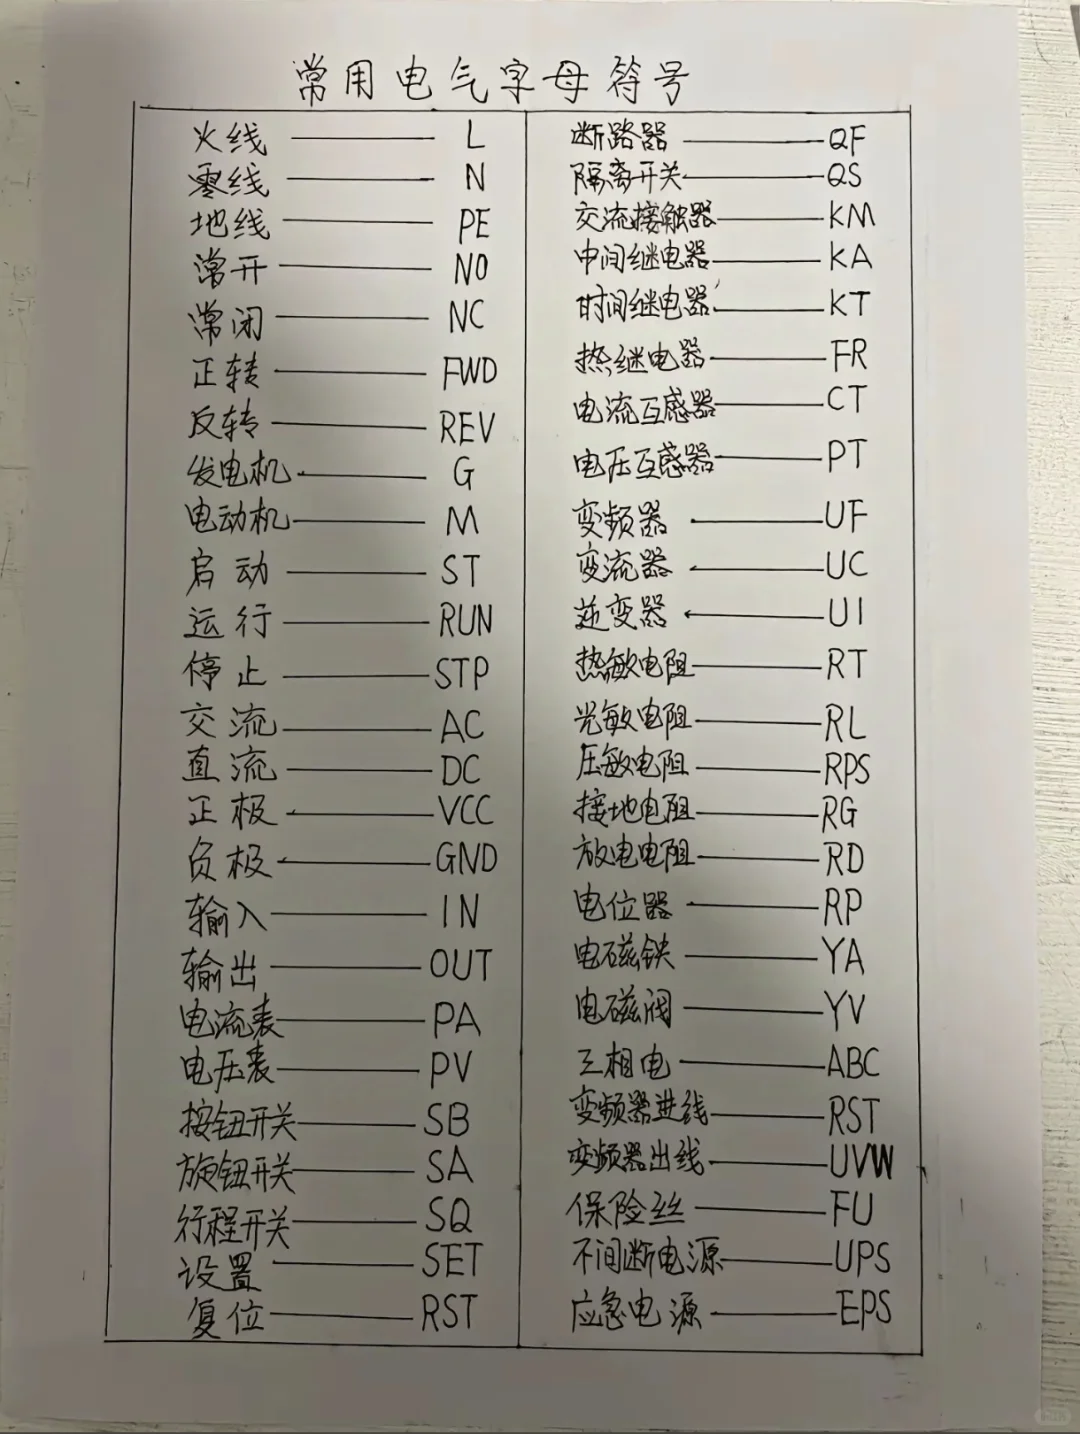 常用电气字母符号
火线 L
零线 N
地线 PE
常开 NO
常闭 NC
正转 FWD
反转 REV
发电机 G
电动机 M
启动 ST
运行 RUN
停止 STP
交流 AC
直流 DC
正极 VCC
负极 GND
输入 IN
输出 OUT
电流表 PA
电压表 PV
按钮开关 SB
旋钮开关 SA
行程开关 SQ
设置 SET
复位 RST
断路器 QF
隔离开关 QS
交流接触器 KM
中间继电器 KA
时间继电器 KT
热继电器 FR
电流互感器 CT
电压互感器 PT
变频器 UF
变流器 UC
逆变器 UI
热敏电阻 RT
光敏电阻 RL
压敏电阻 RPS
接地电阻 RG
放电电阻 RD
电位器 RP
电磁铁 YA
电磁阀 YV
三相电 ABC
变频器进线 RST
变频器出线 UVW
保险丝 FU
不间断电源 UPS
应急电源 EPS